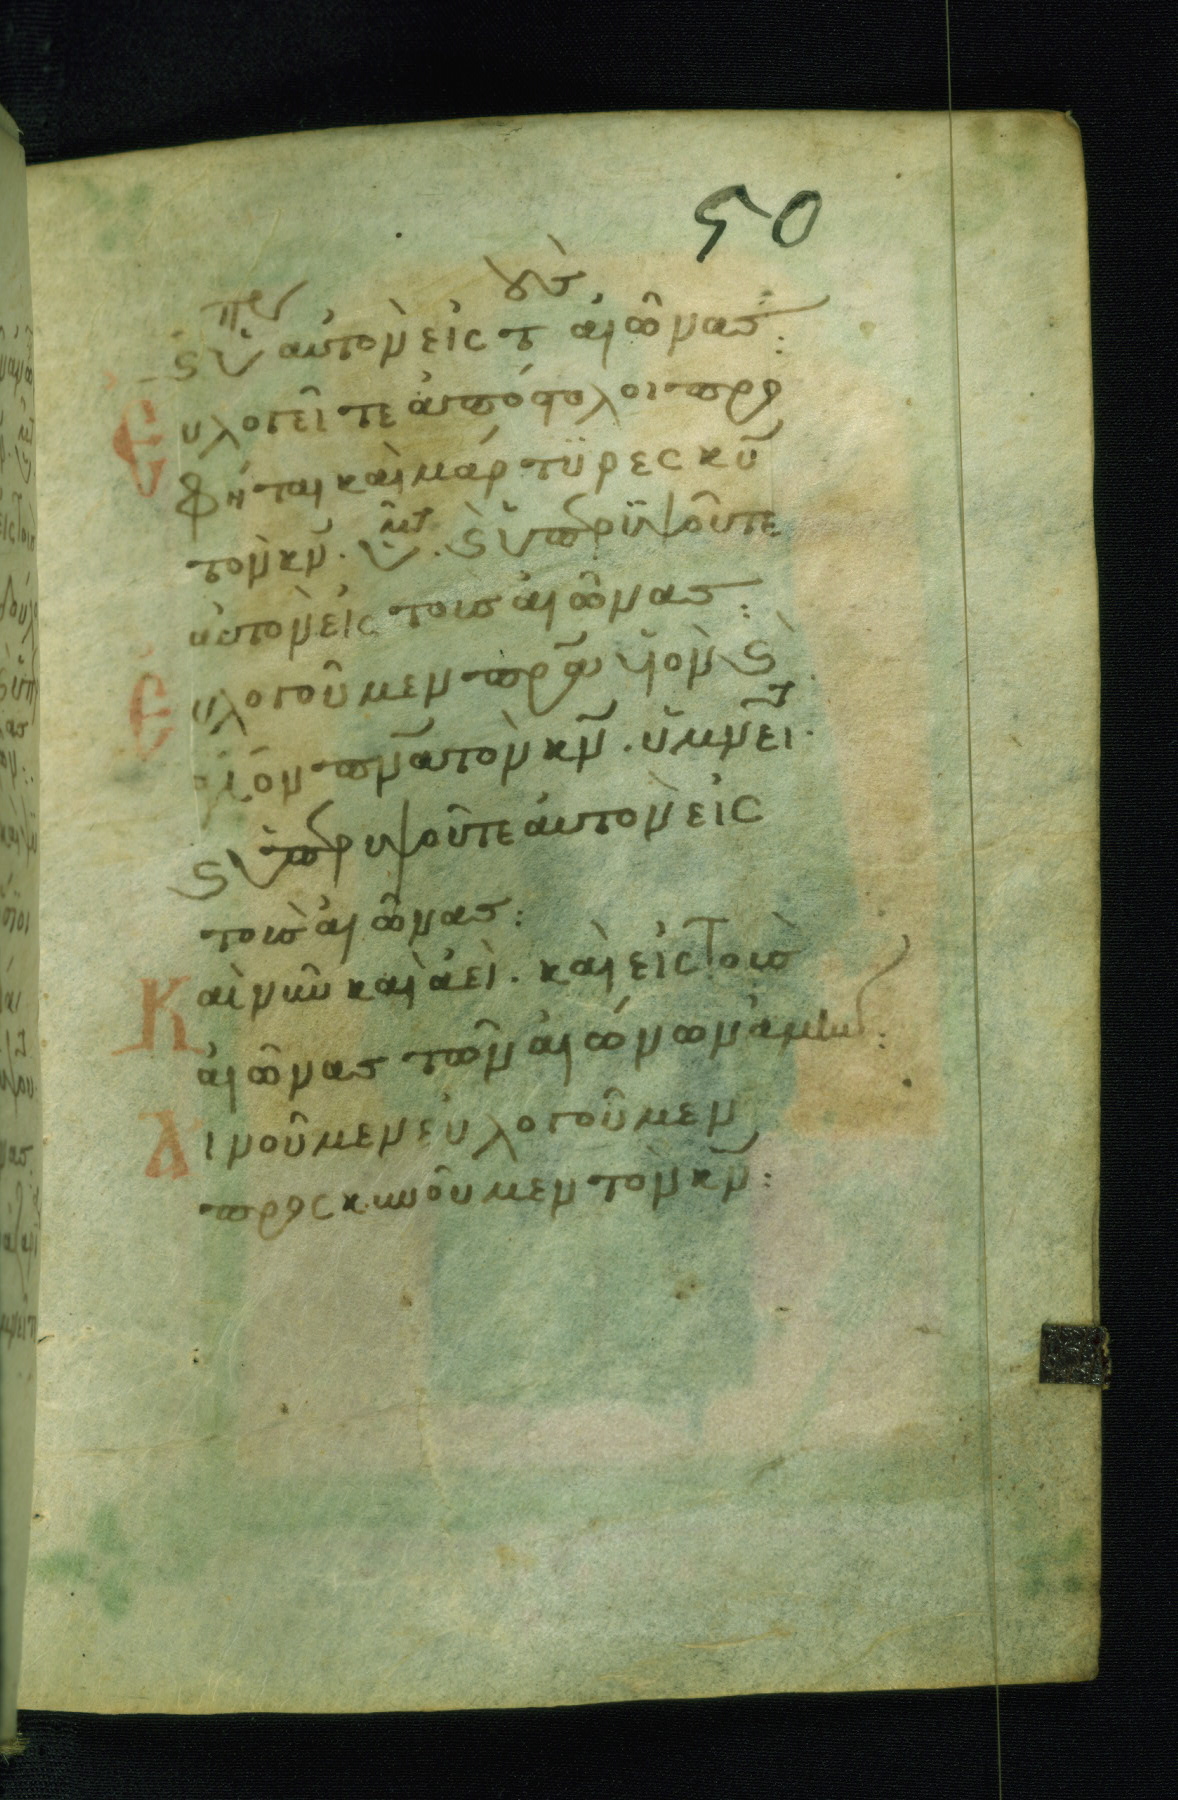 50
πε ους
ϛ ὑ αὐτὸν εἰς τ αἰῶνας:
Εὐλογεῖτε ἀπόστολοι προ
φῆται καὶ μάρτϋρες κῦ
τὸν κν̄. ὑμ. ϛ ὑπερϋψοῦτε
αὐτὸν εἰς τοὺς αἰῶνας:
Εὐλογοῦμεν πρα υἱὸν ϛ
ἅγιον πνα τὸν κν̄. ὑμνεῖτ.
ϛ ὑπερυψοῦτε αὐτὸν εἰς
τοὺς αἰῶνας:
Καὶ νῦν καὶ ἀεὶ. καὶ εἰς τοὺς
αἰῶνας τῶν αἰώνων ἀμήν:
Αἰνοῦμεν εὐλογοῦμεν
προσκυνοῦμεν τὸν κν̄: